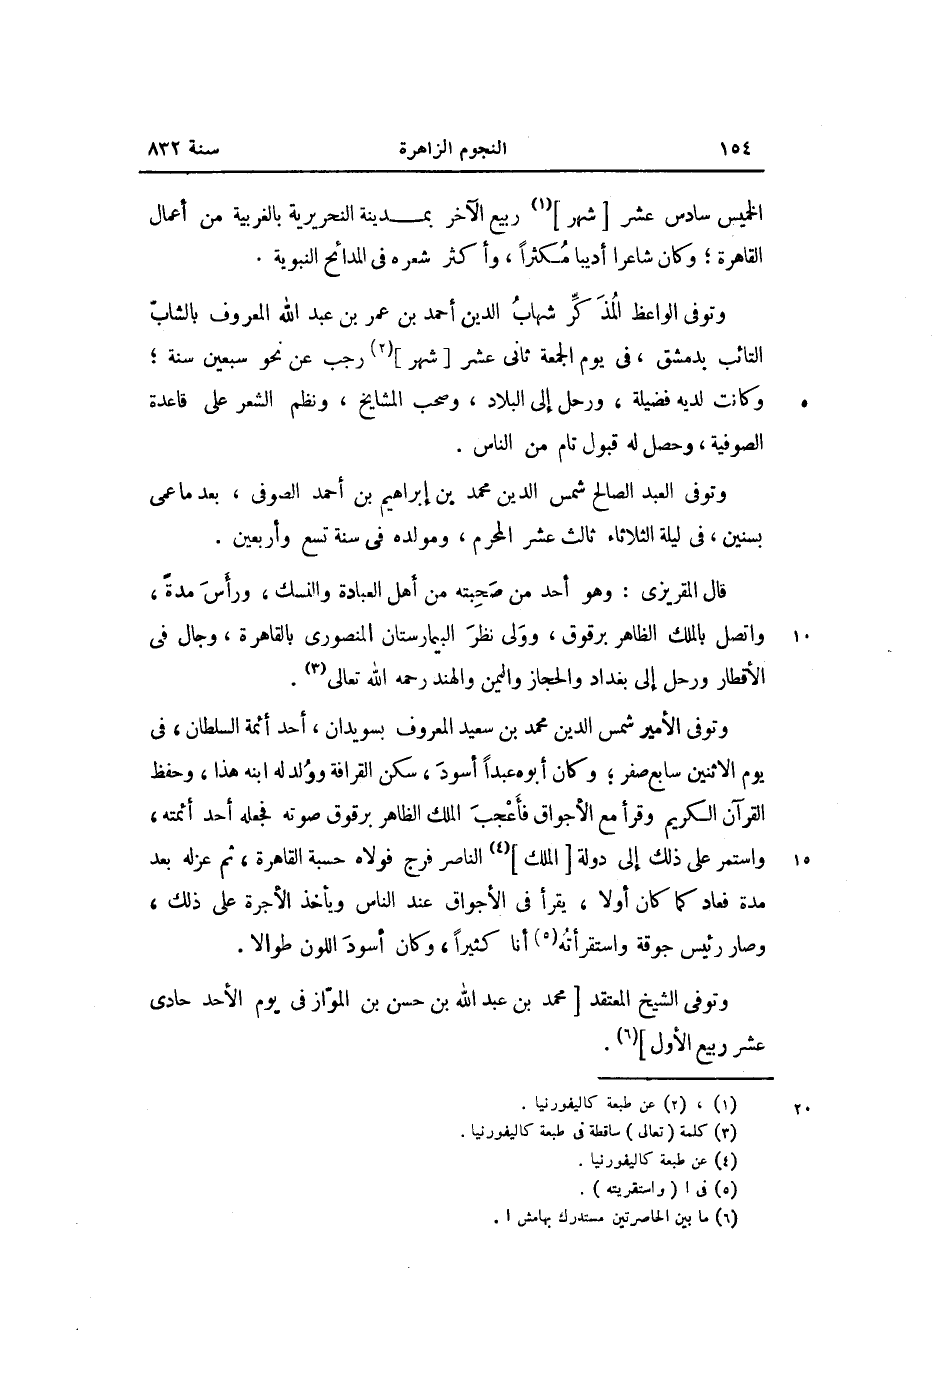 ١٥٤ النجوم الزاهرة سنة ٨٣٢
الخميس سادس عشر [ شهر ](١) ربيع الآخر بمـــدينة النحريرية بالغربية من أعمال
القاهرة ؛ وكان شاعرا أديبا مُكثراً ، وأكثر شعره فى المدائح النبوية .
وتوفى الواعظ المُذَكِّر شهابُ الدين أحمد بن عمر بن عبد الله المعروف بالشابّ
التائب بدمشق ، فى يوم الجمعة ثانى عشر [ شهر ](٢) رجب عن نحو سبعين سنة ؛
٥ وكانت لديه فضيلة ، ورحل إلى البلاد ، وصحب المشايخ ، ونظم الشعر على قاعدة
الصوفية ، وحصل له قبول تام من الناس .
وتوفى العبد الصالح شمس الدين محمد بن إبراهيم بن أحمد الصوفى ، بعد ما عمى
بسنين ، فى ليلة الثلاثاء ثالث عشر المحرم ، ومولده فى سنة تسع وأربعين .
قال المقريزى : وهو أحد من صَحِبته من أهل العبادة والنسك ، ورأَسَ مدةً ،
١٠ واتصل بالملك الظاهر برقوق ، ووَلى نظرَ البيمارستان المنصورى بالقاهرة ، وجال فى
الأقطار ورحل إلى بغداد والحجاز واليمن والهند رحمه الله تعالى(٣) .
وتوفى الأمير شمس الدين محمد بن سعيد المعروف بسويدان ، أحد أئمة السلطان ، فى
يوم الاثنين سابع صفر ؛ وكان أبوه عبداً أسودَ ، سكن القرافة ووُلد له ابنه هذا ، وحفظ
القرآن الكريم وقرأ مع الأجواق فأَعْجبَ الملك الظاهر برقوق صوته فجعله أحد أئمته ،
١٥ واستمر على ذلك إلى دولة [ الملك ](٤) الناصر فرج فولاه حسبة القاهرة ، ثم عزله بعد
مدة فعاد كما كان أولا ، يقرأ فى الأجواق عند الناس ويأخذ الأجرة على ذلك ،
وصار رئيس جوقة واستقرأتُه(٥) أنا كثيراً ، وكان أسودَ اللون طوالا .
وتوفى الشيخ المعتقد [ محمد بن عبد الله بن حسن بن الموّاز فى يوم الأحد حادى
عشر ربيع الأول ](٦) .
٢٠ (١) ، (٢) عن طبعة كاليفورنيا .
(٣) كلمة ( تعالى ) ساقطة فى طبعة كاليفورنيا .
(٤) عن طبعة كاليفورنيا .
(٥) فى ا ( واستقريته ) .
(٦) ما بين الحاصرتين مستدرك بهامش ا .